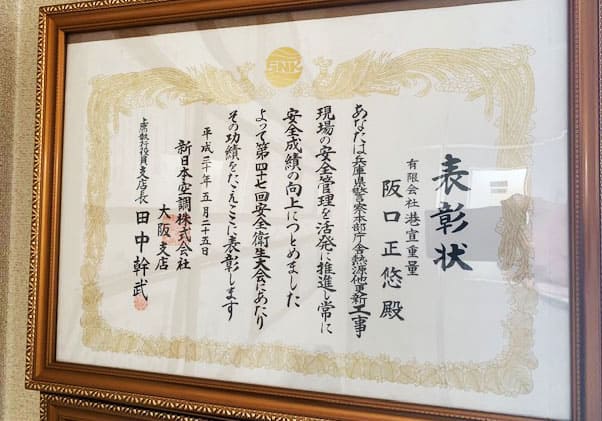 表彰状
有限会社港宣重量
阪口正悠殿
あなたは兵庫県警察本部庁舎熱源他更新工事
現場の安全管理を活発に推進し常に
安全成績の向上につとめました
よって第四十七回安全衛生大会にあたり
その功績をたたえここに表彰します
平成二十年五月二十五日
新日本空調株式会社
大阪支店
上席執行役員支店長 田中幹武